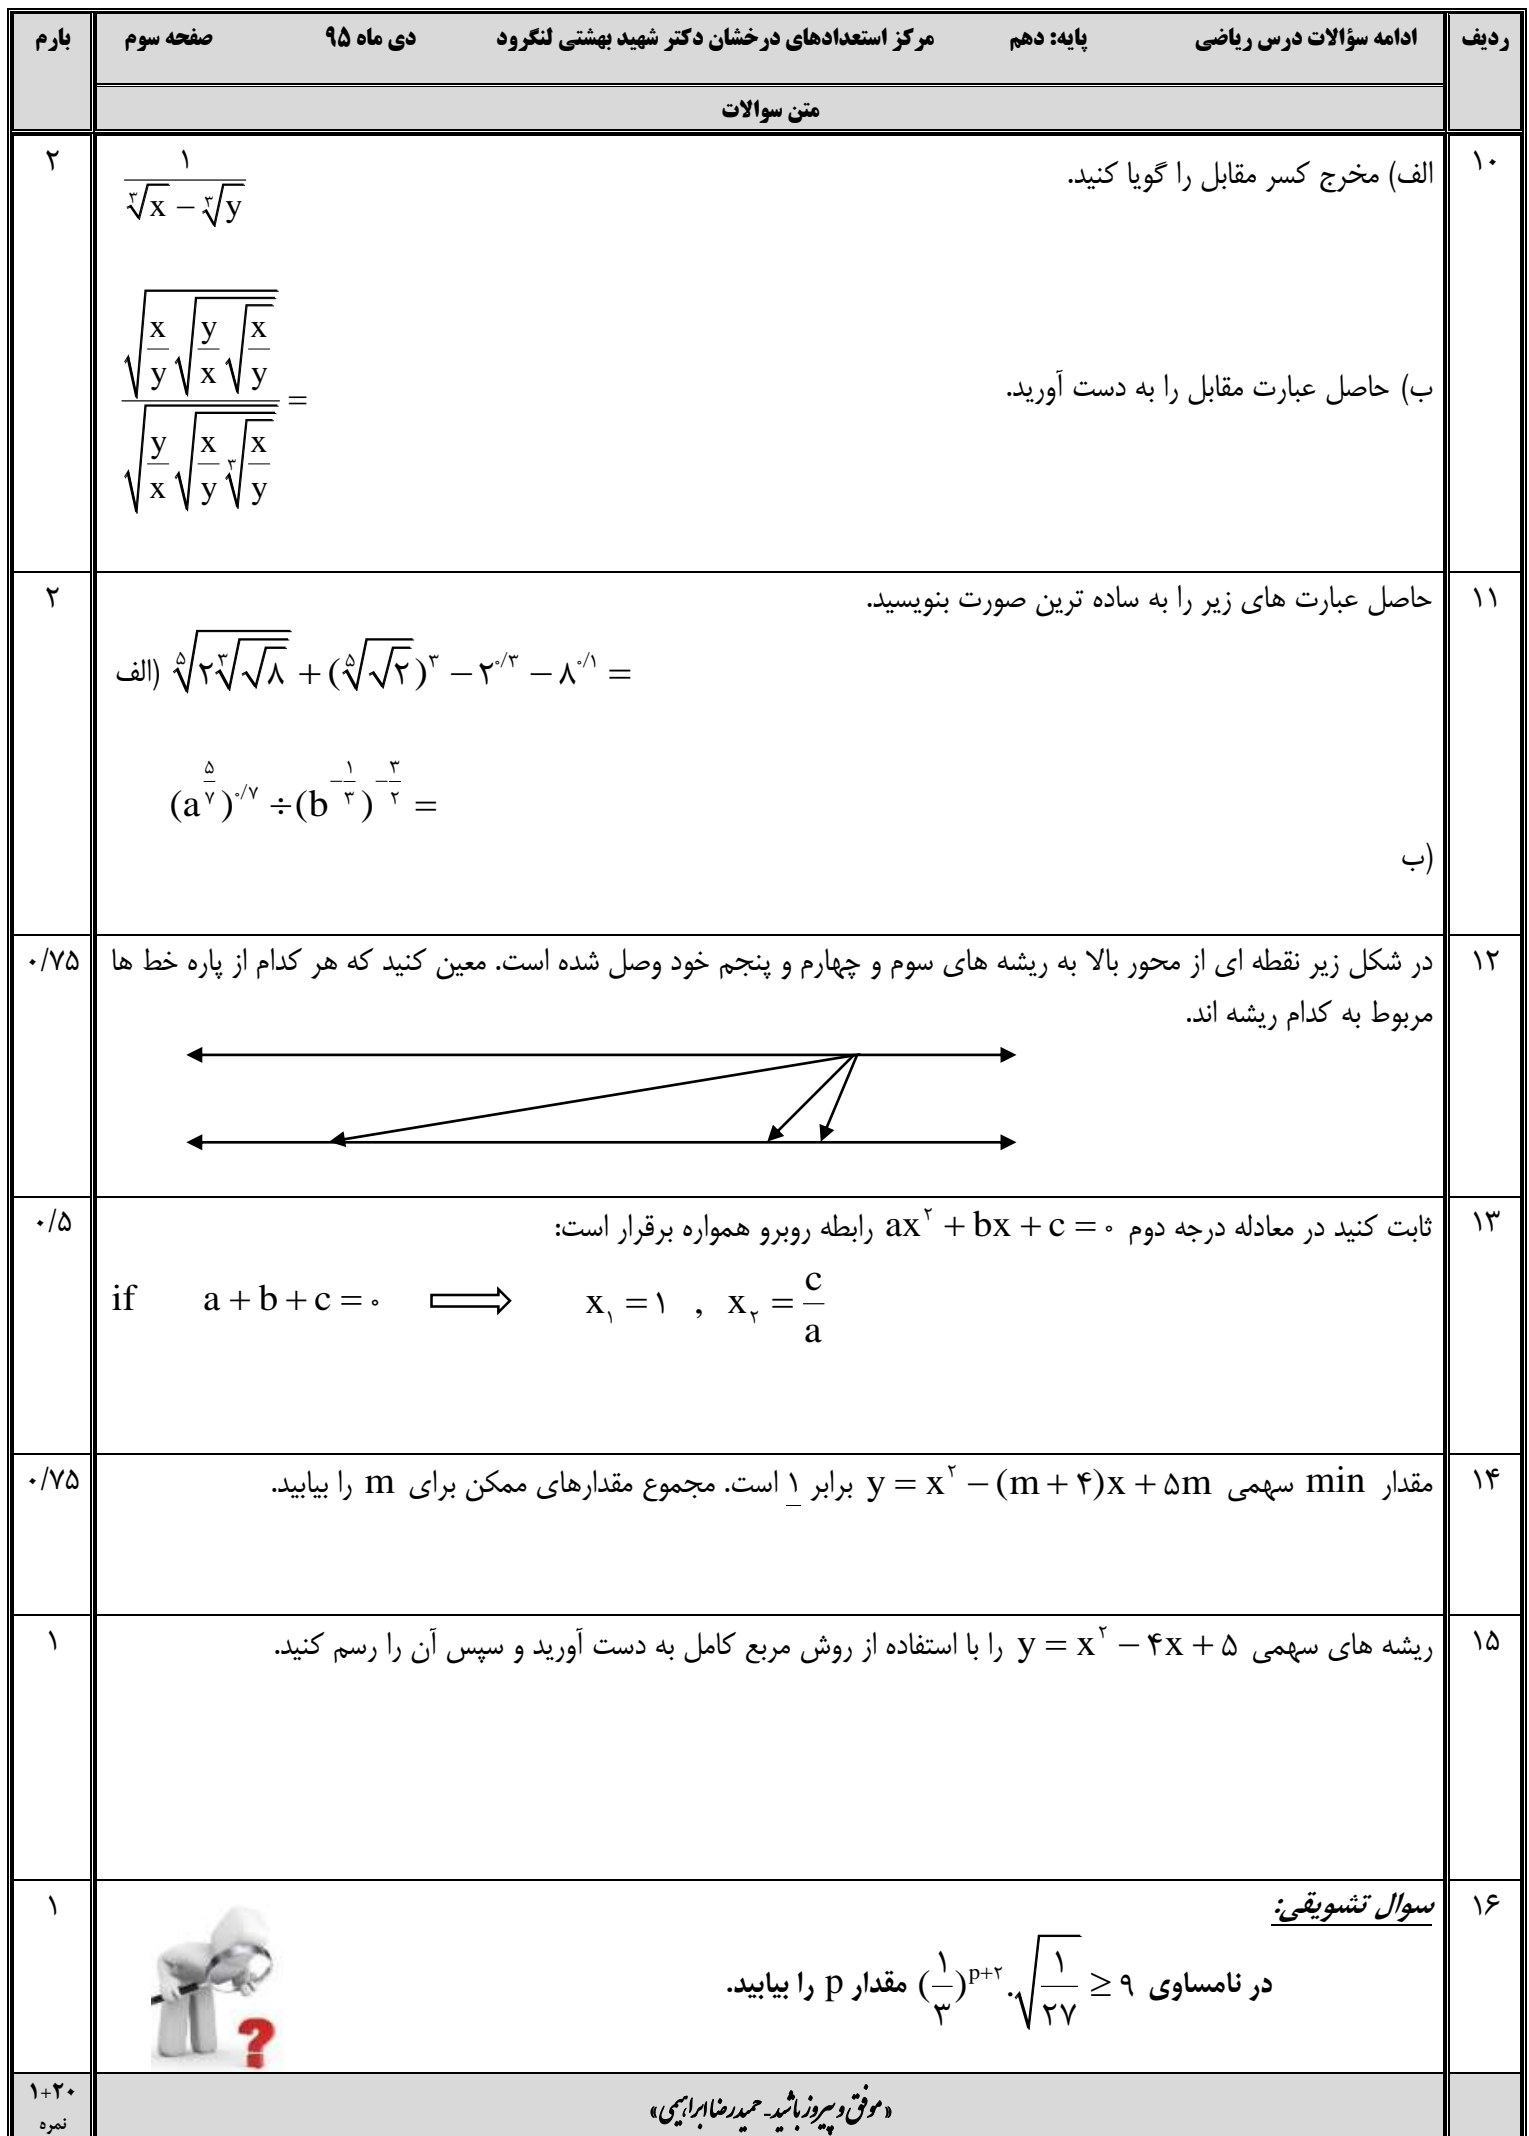 ردیف ادامه سؤالات درس ریاضی پایه: دهم مرکز استعدادهای درخشان دکتر شهید بهشتی لنگرود دی ماه ۹۵ صفحه سوم بارم
متن سوالات
۱۰ الف) مخرج کسر مقابل را گویا کنید. ۱/(∛x − ∛y) ۲
ب) حاصل عبارت مقابل را به دست آورید. √(x/y √(y/x √(x/y))) / √(y/x √(x/y ∛(x/y))) =
۱۱ حاصل عبارت های زیر را به ساده ترین صورت بنویسید. ۲
الف) ⁵√(۲ ³√(√۸)) + (⁵√(√۲))^۳ − ۲^۰/۳ − ۸^۰/۱ =
(a^(۵/۷))^۰/۷ ÷ (b^(−۱/۳))^(−۳/۲) =
ب)
۱۲ در شکل زیر نقطه ای از محور بالا به ریشه های سوم و چهارم و پنجم خود وصل شده است. معین کنید که هر کدام از پاره خط ها ۰/۷۵
مربوط به کدام ریشه اند.
۱۳ ثابت کنید در معادله درجه دوم ax^۲ + bx + c = ۰ رابطه روبرو همواره برقرار است: ۰/۵
if a + b + c = ۰ ⟹ x₁ = ۱ , x₂ = c/a
۱۴ مقدار min سهمی y = x^۲ − (m + ۴)x + ۵m برابر ۱ است. مجموع مقدارهای ممکن برای m را بیابید. ۰/۷۵
۱۵ ریشه های سهمی y = x^۲ − ۴x + ۵ را با استفاده از روش مربع کامل به دست آورید و سپس آن را رسم کنید. ۱
۱۶ سوال تشویقی: ۱
در نامساوی (۱/۳)^(p+۲) . √(۱/۲۷) ≥ ۹ مقدار p را بیابید.
«موفق و پیروز باشید - حمیدرضا ابراهیمی» ۱+۲۰
نمره